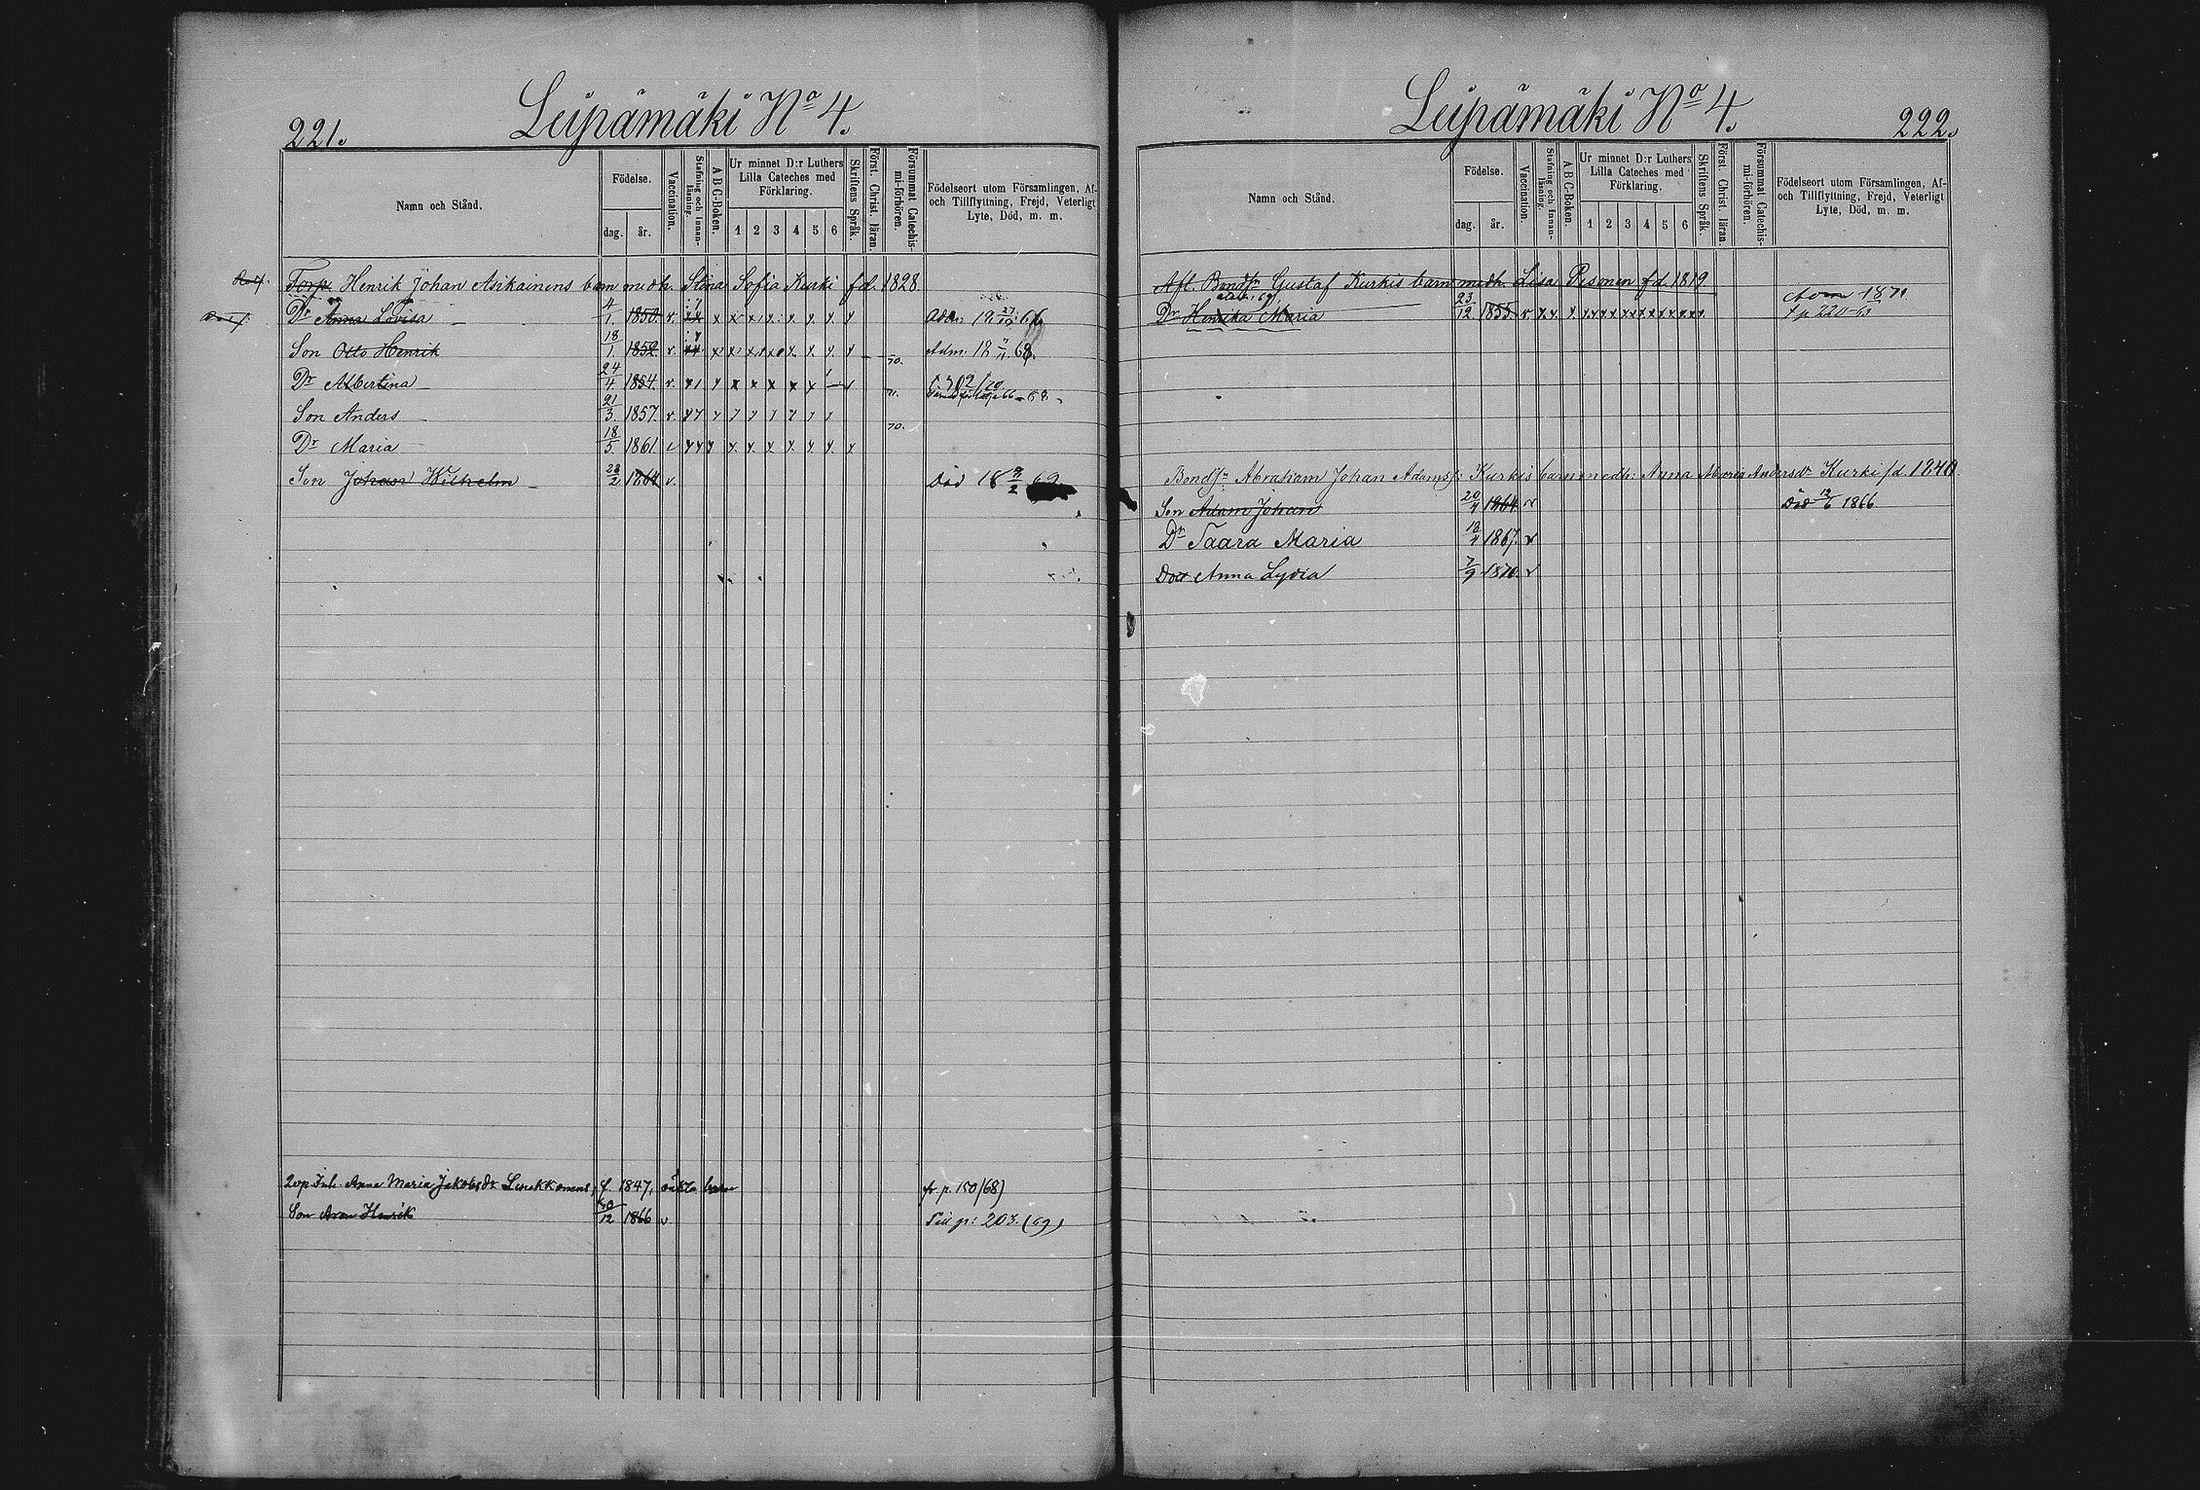 221.
Leipämäki No 4.
Namn och Stånd.
Födelse.
dag.
år.
Vaccination.
Stafning och Innan-läsning.
A B C-Boken.
Ur minnet D:r Luthers
Lilla Cateches med
Förklaring.
1 2 3 4 5 6
Skriftens Språk.
Först. Christ. läran.
Försummat Catechis-mi-förhören.
Födelseort utom Församlingen, Af-
och Tillflyttning, Frejd, Veterligt
Lyte, Död, m. m.
Torp. Henrik Johan Asikainens barn medh. Stina Sofia Kurki fd. 1828
Dr Anna Lovisa 4/1. 1850. v.
Son Otto Henrik 18/1. 1852. v. 70. Adm. 18 68.
Dr Albertina 24/4. 1854. v.
Son Anders 21/3. 1857. v. 70.
Dr Maria 18/5. 1861. v
Son Johan Wilhelm 1864 v. Död 18 69
Anna Maria Jakobsdr f. 1847, oäkta barn fr. p. 150/68)
Son Henrik 30/12 1866 v. Till p: 203. (69)
Leipämäki No 4.
222.
Namn och Stånd.
Födelse.
dag.
år.
Vaccination
Stafning och Innan-läsning.
A B C-Boken.
Ur minnet D:r Luthers
Lilla Cateches med
Förklaring.
1 2 3 4 5 6
Skriftens Språk.
Först. Christ. läran.
Försummat Catechis-mi-förhören.
Födelseort utom Församlingen, Af-
och Tillflyttning, Frejd, Veterligt
Lyte, Död, m. m.
Afl. Bondsn Gustaf Kurkis barn medh. Lisa Pesonen fd. 1819
Adm 1871.
Dr Henrika Maria 23/12 1855. v.
Bondsn Abraham Johan Adamsf: Kurkis barn medh: Anna Maria Andersdr Kurki fd. 1840.
Son Adam Johan 20/4 1864. v Död 12/6 1866.
Dr Saara Maria 18/4 1867. v
Dott Anna Lydia 7/9 1870. v